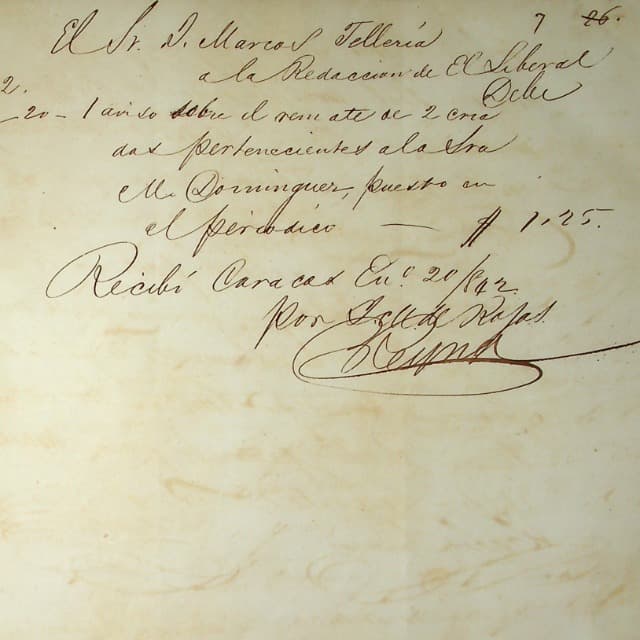 7 26.
El Sr. D. Marcos Tellería
a la Redaccion de El Liberal
Debe
2.
20 - 1 aviso sobre el remate de 2 cria
das pertenecientes a la Sra
M. Dominguez, puesto en
el periódico — $ 1,25.
Recibí Caracas En.º 20/842
por de Rojas